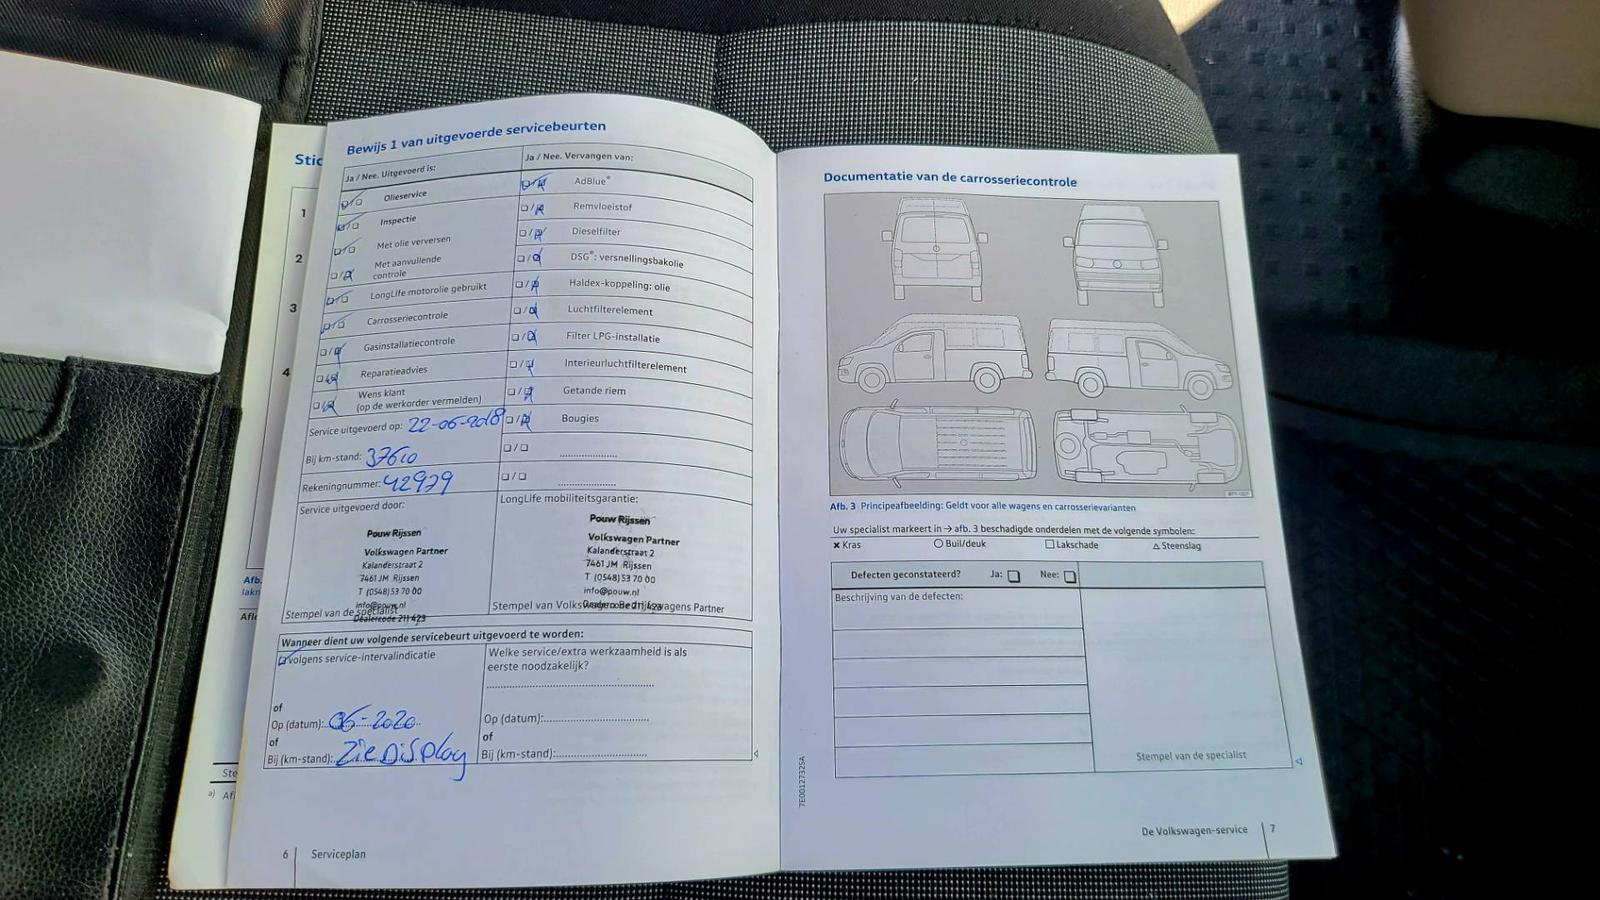 Stic
1
2
3
4
Afb.
lakn
Afle
Ste
a) Afl
Bewijs 1 van uitgevoerde servicebeurten
Ja / Nee. Uitgevoerd is:
Olieservice
Inspectie
Met olie verversen
Met aanvullende
controle
LongLife motorolie gebruikt
Carrosseriecontrole
Gasinstallatiecontrole
Reparatieadvies
Wens klant
(op de werkorder vermelden)
Service uitgevoerd op: 22-06-2018
Bij km-stand: 37610
Rekeningnummer: 42979
Ja / Nee. Vervangen van:
AdBlue®
Remvloeistof
Dieselfilter
DSG®: versnellingsbakolie
Haldex-koppeling: olie
Luchtfilterelement
Filter LPG-installatie
Interieurluchtfilterelement
Getande riem
Bougies
Service uitgevoerd door:
Pouw Rijssen
Volkswagen Partner
Kalanderstraat 2
7461 JM Rijssen
T (0548) 53 70 00
info@pouw.nl
Dealercode 211 423
Stempel van de specialist
LongLife mobiliteitsgarantie:
Pouw Rijssen
Volkswagen Partner
Kalanderstraat 2
7461 JM Rijssen
T (0548) 53 70 00
info@pouw.nl
Dealercode 211 423
Stempel van Volkswagen Bedrijfswagens Partner
Wanneer dient uw volgende servicebeurt uitgevoerd te worden:
volgens service-intervalindicatie
of
Op (datum): 06-2020
of
Bij (km-stand): Zie Display
Welke service/extra werkzaamheid is als
eerste noodzakelijk?
Op (datum):
of
Bij (km-stand):
6 Serviceplan
Documentatie van de carrosseriecontrole
Afb. 3 Principeafbeelding: Geldt voor alle wagens en carrosserievarianten
Uw specialist markeert in → afb. 3 beschadigde onderdelen met de volgende symbolen:
× Kras ○ Buil/deuk □ Lakschade △ Steenslag
Defecten geconstateerd? Ja: Nee:
Beschrijving van de defecten:
Stempel van de specialist
7E0012732SA
De Volkswagen-service 7